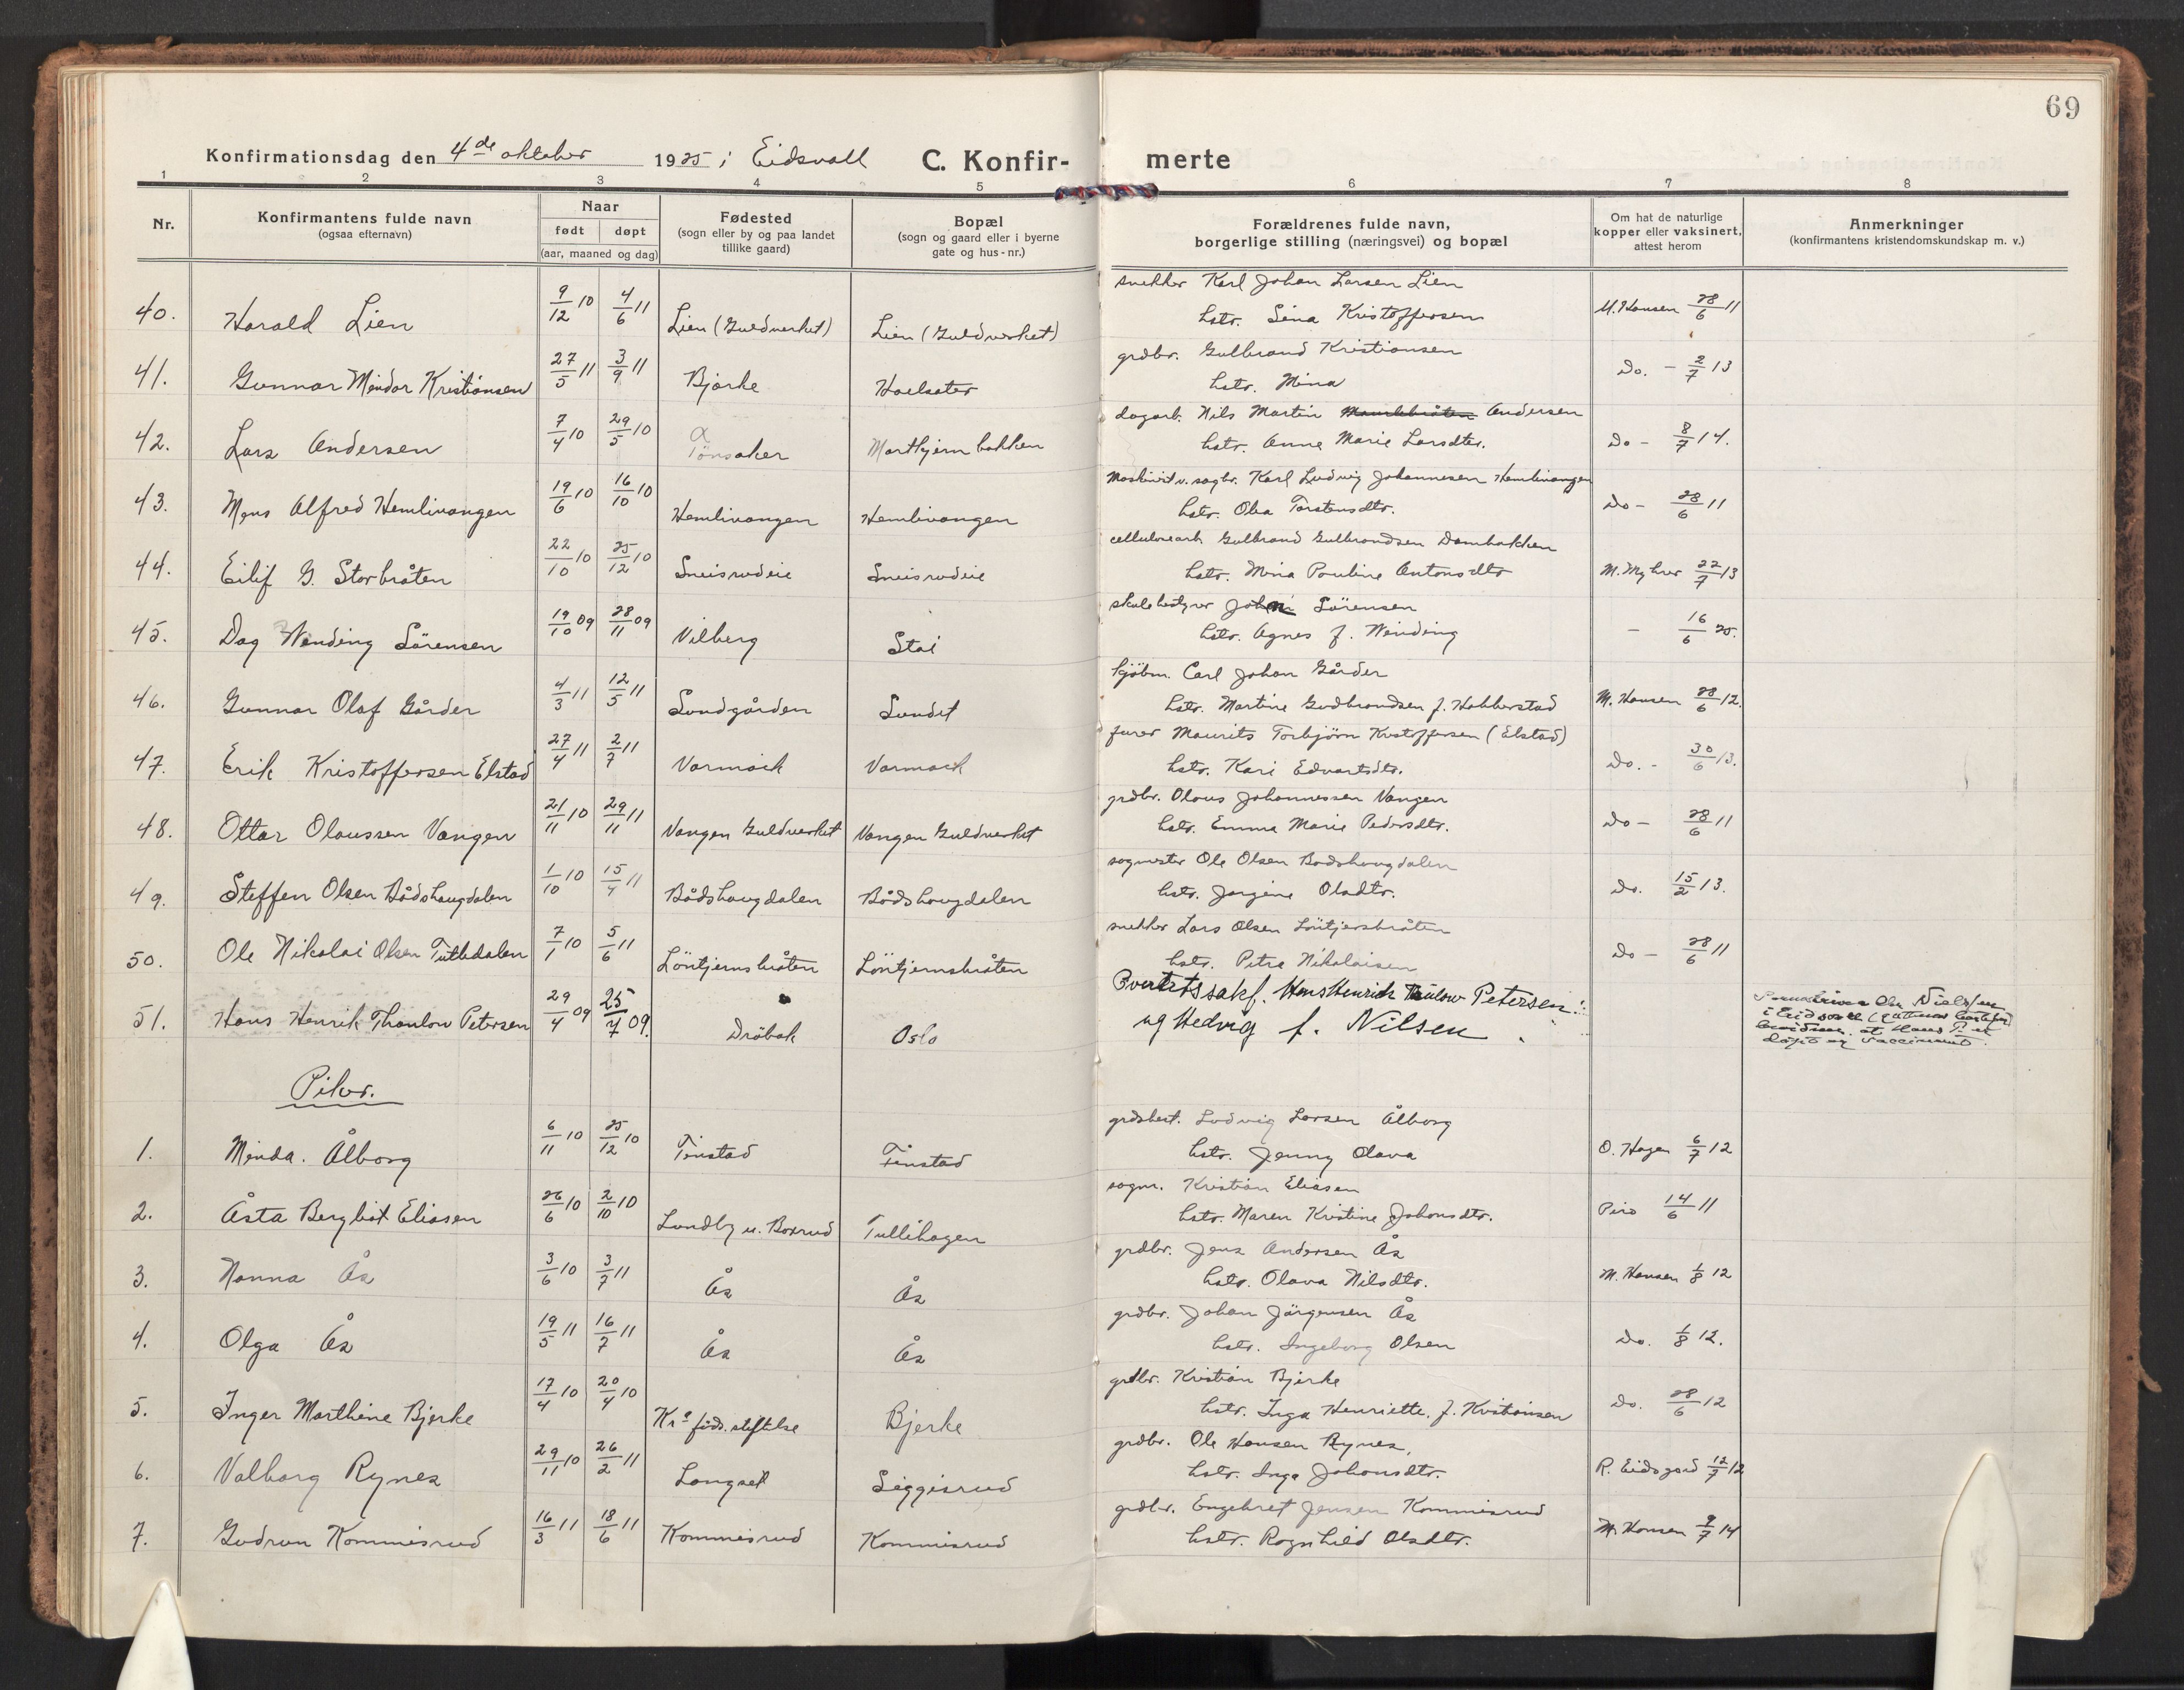 69
Konfirmationsdag den 4de oktober 1925 i Eidsvall C. Konfir- merte
1 2 3 4 5 6 7 8
Nr. Konfirmantens fulde navn (ogsaa efternavn) Naar født døpt (aar, maaned og dag) Fødested (sogn eller by og paa landet tillike gaard) Bopæl (sogn og gaard eller i byerne gate og hus-nr.) Forældrenes fulde navn, borgerlige stilling (næringsvei) og bopæl Om hat de naturlige kopper eller vaksinert, attest herom Anmerkninger (konfirmantens kristendomskundskap m. v.)
snekker Karl Johan Larsen Lien
40. Harald Lien 9/12 10 4/6 11 Lien (Guldverket) Lien (Guldverket) hstr. Lina Kristoffersen M. Hansen 28/6 11
grdbr. Gulbrand Kristiansen
41. Gunnar Mindor Kristiansen 27/5 11 3/9 11 Bjørke Hoelsæter hstr. Mina Do. - 2/7 13
dagarb. Nils Martin Andersen
42. Lars Andersen 7/4 10 29/5 10 Tönsaker Martkjernbakken hstr. Anne Marie Larsdtr. Do - 8/7 14.
Maskinist v. sagbr. Karl Ludvig Johannesen Hemlivangen
43. Mons Alfred Hemlivangen 19/6 10 16/10 10 Hemlivangen Hemlivangen hstr. Olea Torstensdtr. Do - 28/6 11
cellulosearb. Gulbrand Gulbrandsen Dambakken
44. Eilif G. Storbråten 22/10 10 25/12 10 Sneisrudeie Sneisrudeie hstr. Mina Pauline Antonsdtr M. Myhrer 22/7 13
skolebestyrer John Sörensen
45. Dag Wending Sörensen 19/10 09 28/11 09 Vilberg Stai hstr. Agnes f. Winding - 16/6 25.
kjöbm. Carl Johan Gårder
46. Gunnar Olaf Gårder 4/3 11 12/5 11 Sundgården Sundet hstr. Martine Gudbrandsen f. Habberstad M. Hansen 28/6 12.
furer Maurits Torbjörn Kristoffersen (Elstad)
47. Erik Kristoffersen Elstad 27/4 11 2/7 11 Vormoek Vormoek hstr. Kari Edvartsdtr. Do. - 30/6 13.
grdbr. Olaus Johannessen Vangen
48. Ottar Olaussen Vangen 21/11 10 29/11 11 Vangen Guldverket Vangen Guldverket hstr. Emma Marie Pedersdtr. Do - 28/6 11
sagmester Ole Olsen Bådshaugdalen
49. Steffen Olsen Bådshaugdalen 1/10 10 15/4 11 Bådshaugdalen Bådshaugdalen hstr. Jørgine Olsdtr. Do. 15/2 13.
snekker Lars Olsen Löntjernsbråten
50. Ole Nikolai Olsen Tutledalen 7/1 10 5/6 11 Löntjernsbråten Löntjernsbråten hstr. Petra Nikolaisen Do - 28/6 11
Overrettssakf. Hans Henrik Thaulow Petersen
51. Hans Henrik Thaulow Petersen 29/4 09 25/7 09. Dröbak Oslo og Hedvig f. Nilsen
Nielsen i Eidsvoll at Hans P. er døpt og vaccineret.
Piker.
grdbest. Ludvig Larsen Ålborg
1. Minda. Ålborg 6/11 10 25/12 10 Finstad Finstad hstr. Jenny Olava O. Hagen 6/7 12
sagm. Kristian Eliasen
2. Åsta Bergliot Eliasen 26/6 10 2/10 10 Lundby u. Boxrud Tullihagen hstr. Maren Kristine Johansdtr. Piro 14/6 11
grdbr. Jens Andersen Ås
3. Nanna Ås 3/6 10 3/7 11 Ås Ås hstr. Olava Nilsdtr. M. Hansen 1/8 12
grdbr. Johan Jörgensen Ås
4. Olga Ås 19/5 11 16/7 11 Ås Ås hstr. Ingeborg Olsen Do. 1/8 12.
grdbr. Kristian Bjerke
5. Inger Marthine Bjerke 17/4 10 20/4 10 Kra föds. stiftelse Bjerke hstr. Inga Henriette. f. Kristiansen Do. 28/6 12
grdbr. Ole Hansen Rynes,
6. Valborg Rynes 29/11 10 26/2 11 Langset Siggisrud hstr. Inga Johansdtr. R. Eidsgard 12/7 12
grdbr. Engebret Jensen Kommisrud
7. Gudrun Kommisrud 16/3 11 18/6 11 Kommisrud Kommisrud hstr. Ragnhild Olsdtr. M. Hansen 9/7 14